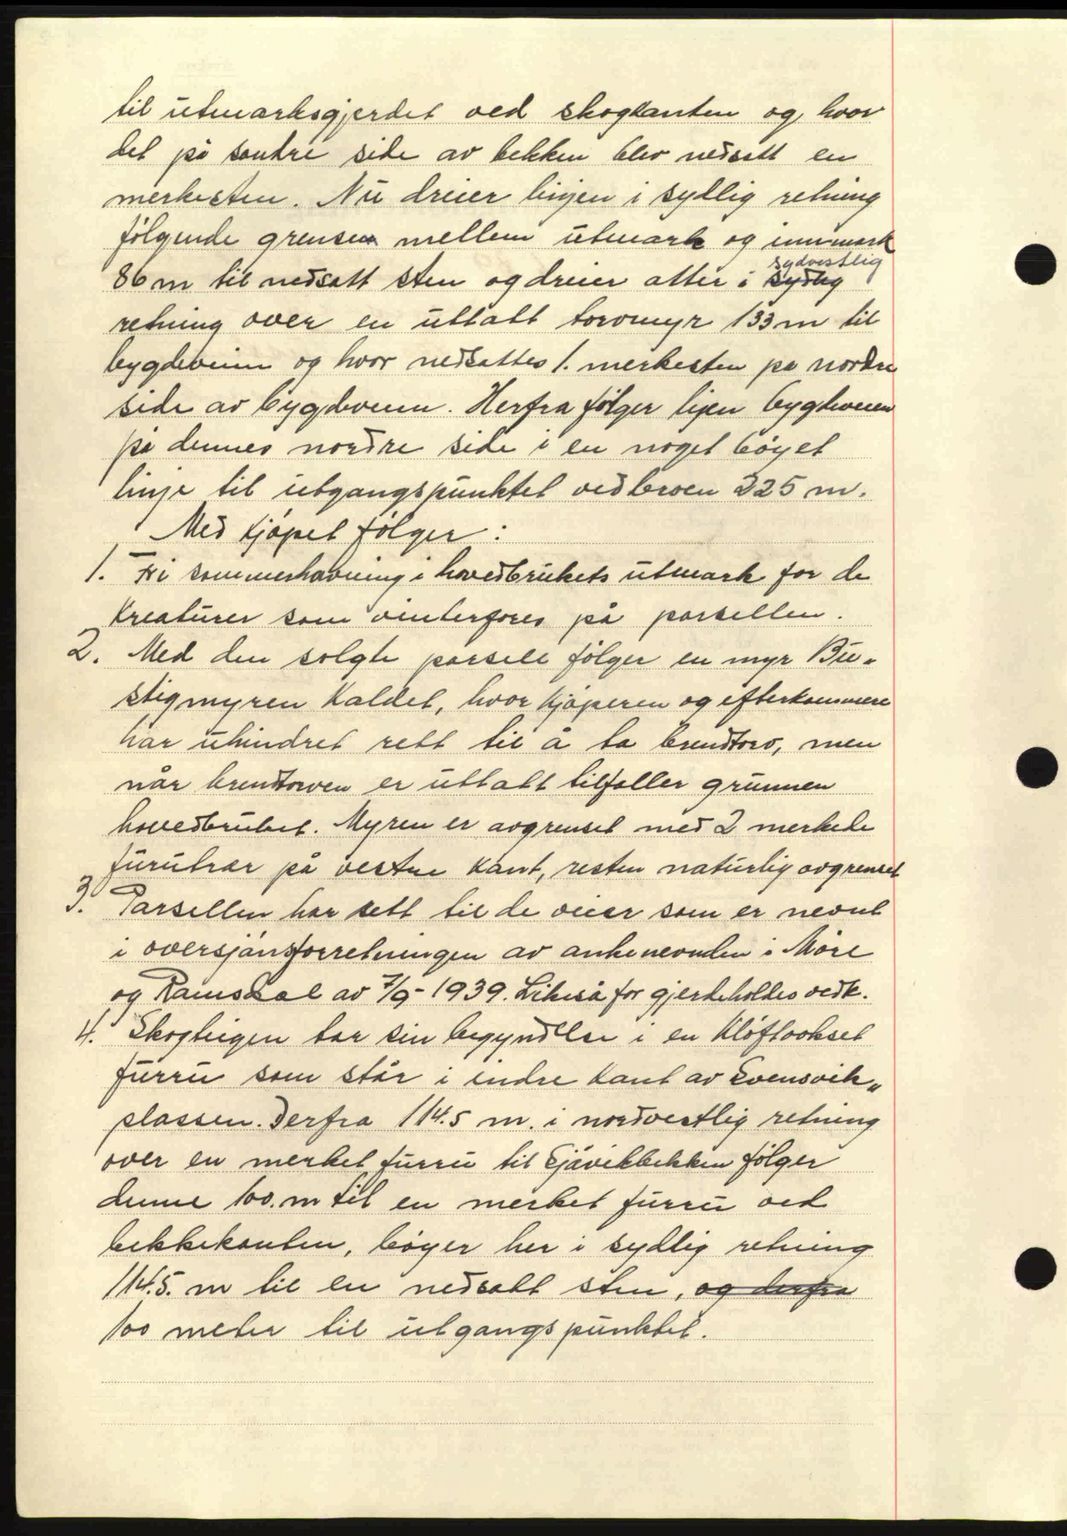 til utmarksgjerdet ved skogkanten og hvor
det på søndre side av bekken blev nedsatt en
merkesten. Nu dreier linjen i sydlig retning
følgende grensen mellem utmark og innmark
86 m til nedsatt sten og dreier atter i sydvestlig
retning over en uttatt torvmyr 133 m til
bygdeveien og hvor nedsattes 1. merkesten på nordre
side av bygdeveien. Herfra følger lijen bygdeveien
på dennes nordre side i en noget bøyet
linje til utgangspunktet ved broen 225 m.
Med kjøpet følger:
1. Fri sommerhavning i hovedbrukets utmark for de
kreaturer som vinterfores på parsellen.
2. Med den solgte parsell følger en myr Bu-
stigmyren kaldet, hvor kjøperen og efterkommere
har uhindret rett til å ta brendtorv, men
når brendtorven er uttatt tilfaller grunnen
hovedbruket. Myren er avgrenset med 2 merkede
furutrær på vestre kant, resten naturlig avgrenset
3. Parsellen har rett til de veier som er nevnt
i oversjønsforretningen av ankenevnden i Møre
og Ramsdal av 7/9-1939. Likeså for gjerdeholdes vedk.
4. Skogteigen tar sin begyndelse i en kløftvokset
furru som står i indre kant av Svensvik-
plassen. Derfra 114.5 m. i nordvestlig retning
over en merket furru til Sjåvikbekken følger
denne 100. m til en merket furru ved
bekkekanten, bøyer her i sydlig retning
114.5. m til en nedsatt sten, og derfra
100 meter til utgangspunktet.